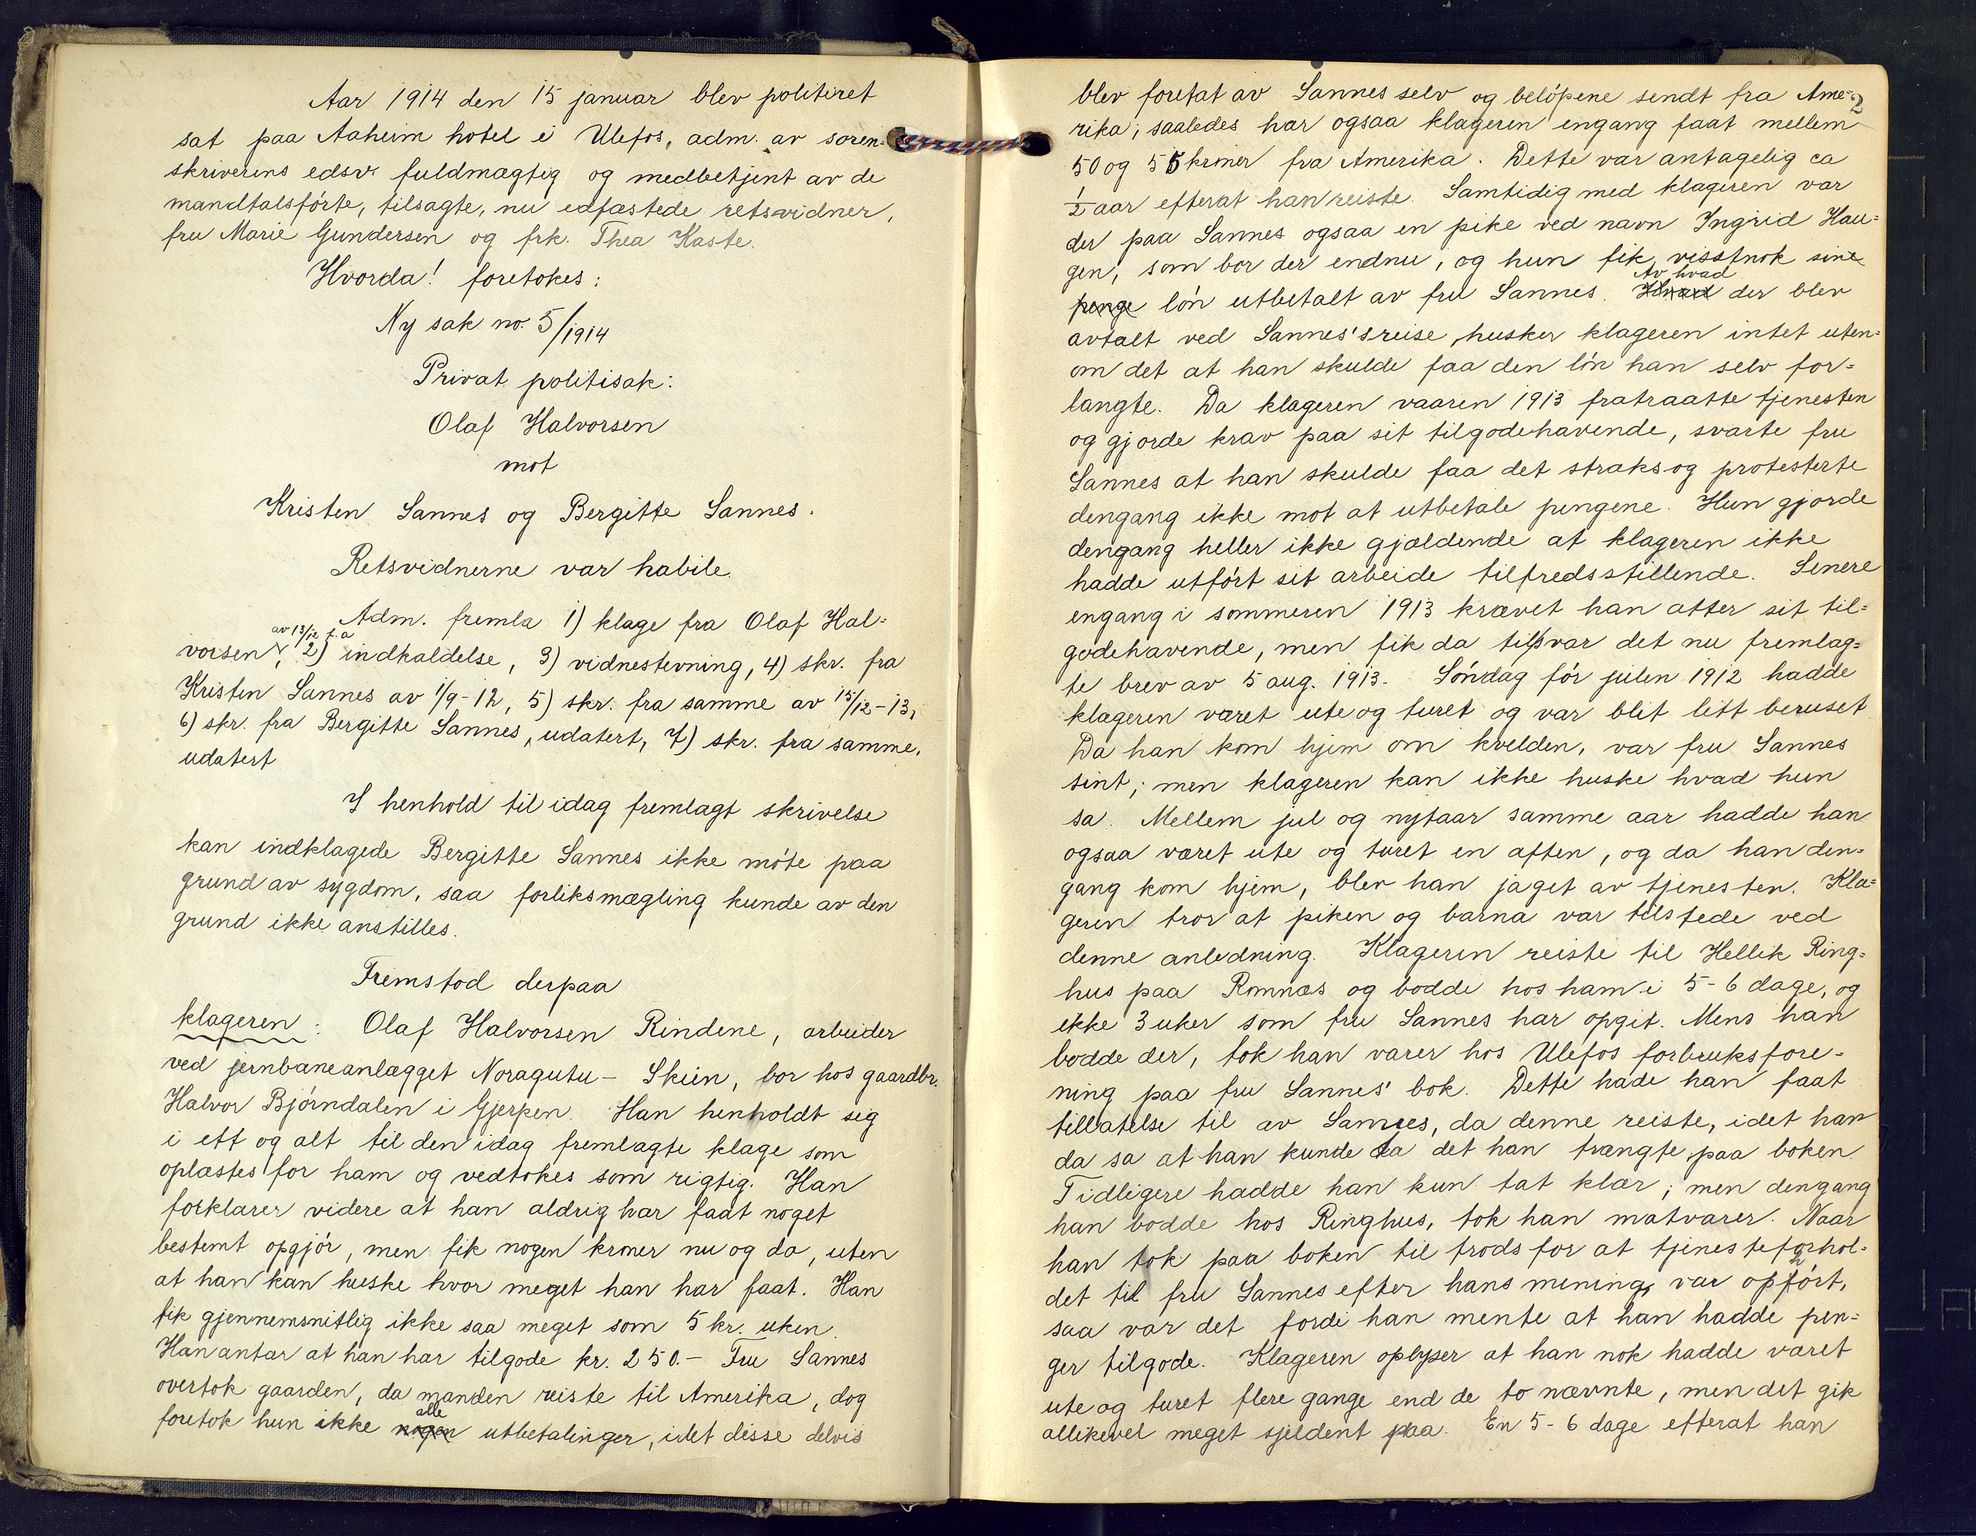 Aar 1914 den 15 januar blev politiret
sat paa Aaheim hotel i Ulefos, adm. av soren-
skriverens edsv. fuldmægtig og medbetjent av de
mandtalsførte, tilsagte, nu edfæstede retsvidner,
fru Marie Gundersen og frk. Thea Kaste.
Hvorda! foretokes:
Ny sak no. 5/1914
Privat politisak:
Olaf Halvorsen
mot
Kristen Sannes og Bergitte Sannes.
Retsvidnerne var habile.
Adm. fremla 1) klage fra Olaf Hal-
av 13/12 f.a
vorsen, 2) indkaldelse, 3) vidnestevning, 4) skr. fra
Kristen Sannes av 1/9-12, 5) skr. fra samme av 15/12-13,
6) skr. fra Bergitte Sannes, udatert, 7) skr. fra samme,
udatert
I henhold til idag fremlagt skrivelse
kan indklagede Bergitte Sannes ikke møte paa
grund av sygdom, saa forliksmægling kunde av den
grund ikke anstilles.
Fremstod derpaa
klageren: Olaf Halvorsen Rindene, arbeider
ved jernbaneanlægget Noragutu - Skien, bor hos gaardbr.
Halvor Bjørndalen i Gjerpen. Han henholdt seg
i ett og alt til den idag fremlagte klage som
oplæstes for ham og vedtokes som rigtig. Han
forklarer videre at han aldrig har faat noget
bestemt opgjør, men fik nogen kroner nu og da, uten
at han kan huske hvor meget han har faat. Han
fik gjennemsnitlig ikke saa meget som 5 kr. uken.
Han antar at han har tilgode kr. 250.- Fru Sannes
overtok gaarden, da manden reiste til Amerika, dog
alle
foretok hun ikke nogen utbetalinger, idet disse delvis
2
blev foretat av Sannes selv og beløpene sendt fra Ame-
rika; saaledes har ogsaa klageren engang faat mellem
50 og 55 kroner fra Amerika. Dette var antagelig ca
1/2 aar efterat han reiste. Samtidig med klageren var
der paa Sannes ogsaa en pike ved navn Ingrid Hau-
gen, som bor der endnu, og hun fik visstnok sine
Av hvad
penge løn utbetalt av fru Sannes. Hvad der blev
avtalt ved Sannes's reise, husker klageren intet uten-
om det at han skulde faa den løn han selv for-
langte. Da klageren vaaren 1913 fratraatte tjenesten
og gjorde krav paa sit tilgodehavende, svarte fru
Sannes at han skulde faa det straks og protesterte
dengang ikke mot at utbetale pengene. Hun gjorde
dengang heller ikke gjældende at klageren ikke
hadde utført sit arbeide tilfredsstillende. Senere
engang i sommeren 1913 krævet han atter sit til-
godehavende, men fik da tilsvar det nu fremlag-
te brev av 5 aug. 1913. Søndag før julen 1912 hadde
klageren været ute og turet og var blit lett beruset
Da han kom hjem om kvelden, var fru Sannes
sint; men klageren kan ikke huske hvad hun
sa. Mellem jul og nytaar samme aar hadde han
ogsaa været ute og turet en aften, og da han den-
gang kom hjem, blev han jaget av tjenesten. Kla-
geren tror at piken og barna var tilstede ved
denne anledning. Klageren reiste til Hellik Ring-
hus paa Romnæs og bodde hos ham i 5-6 dage, og
ikke 3 uker som fru Sannes har opgit. Mens han
bodde der, tok han varer hos Ulefos forbruksfore-
ning paa fru Sannes' bok. Dette hade han faat
tillatelse til av Sannes, da denne reiste, idet han
da sa at han kunde ta det han trængte paa boken.
Tidligere hadde han kun tat klær; men dengang
han bodde hos Ringhus, tok han matvarer. Naar
han tok paa boken til trods for at tjenesteforhol-
det til fru Sannes efter hans mening var ophørt,
saa var det fordi han mente at han hadde pen-
ger tilgode. Klageren oplyser at han nok hadde været
ute og turet flere gange end de to nævnte, men det gik
allikevel meget sjeldent paa. En 5-6 dage efterat han